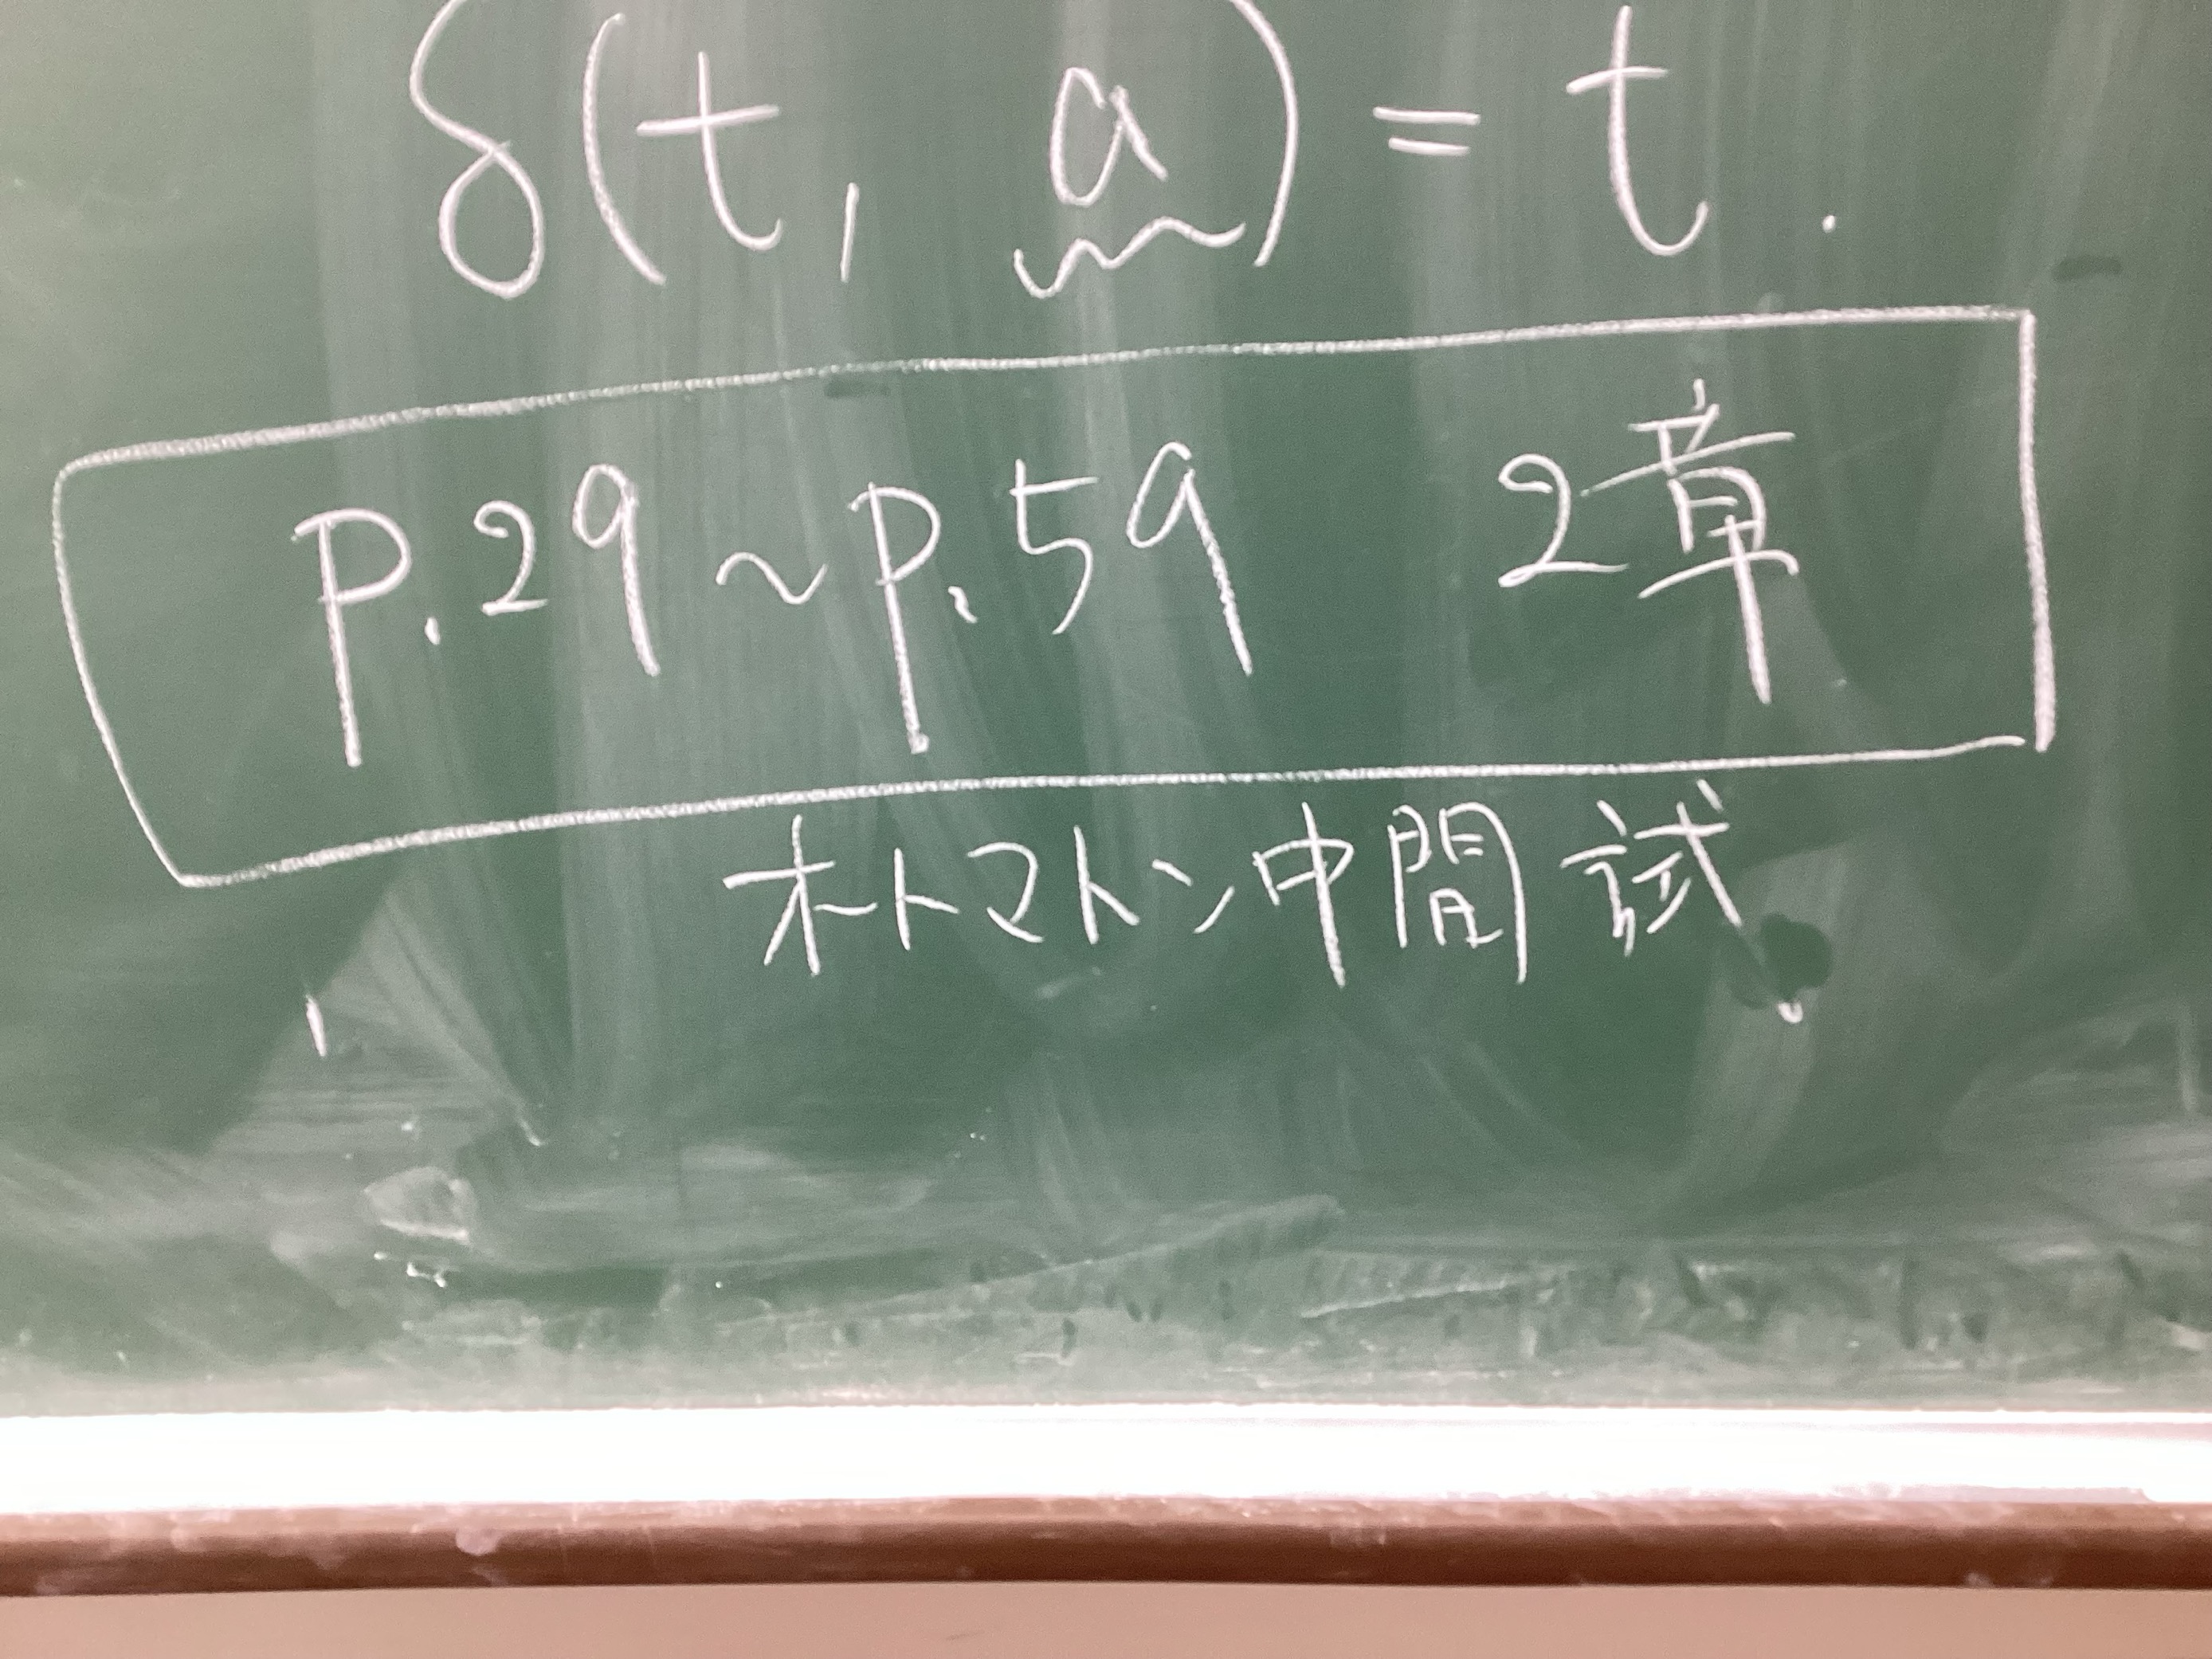 δ(t, a) = t.
P.29～P.59 2章
オートマトン中間試